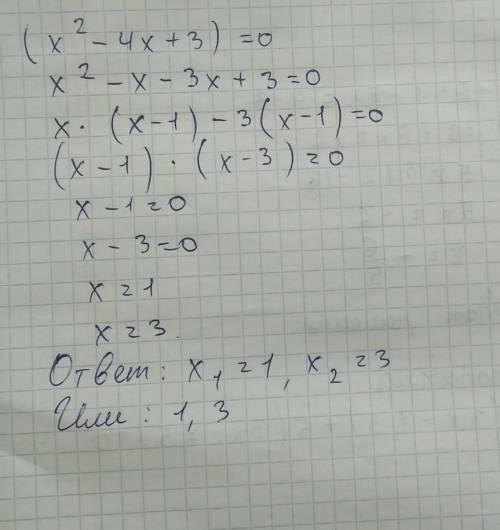 (x² - 4x + 3) = 0
x² - x - 3x + 3 = 0
x · (x - 1) - 3(x - 1) = 0
(x - 1) · (x - 3) = 0
x - 1 = 0
x - 3 = 0
x = 1
x = 3.
Ответ: x₁ = 1, x₂ = 3
Или: 1, 3